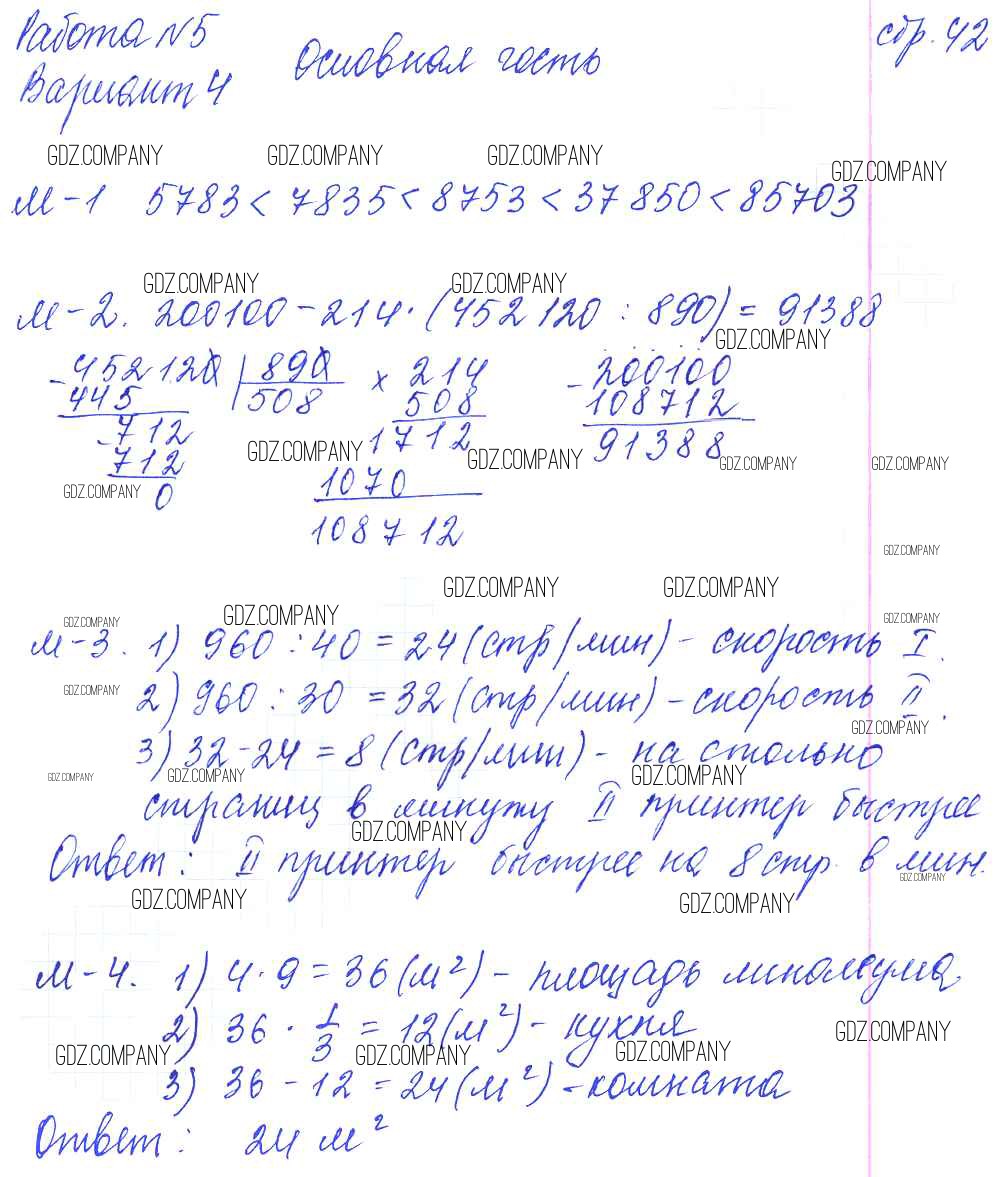 Работа №5
стр. 42
Основная часть
Вариант 4
GDZ.COMPANY GDZ.COMPANY GDZ.COMPANY GDZ.COMPANY
М-1 5783 < 7835 < 8753 < 37 850 < 85703
GDZ.COMPANY GDZ.COMPANY
М-2. 200100 - 214 · (452 120 : 890) = 91388
GDZ.COMPANY
- 452120 | 890 × 214 - 200100
445 508 508 108712
- 712 1712 91388
GDZ.COMPANY GDZ.COMPANY GDZ.COMPANY GDZ.COMPANY
712 1070
GDZ.COMPANY
0 108712
GDZ.COMPANY
GDZ.COMPANY GDZ.COMPANY
GDZ.COMPANY GDZ.COMPANY GDZ.COMPANY
М-3. 1) 960 : 40 = 24 (стр/мин) - скорость I.
GDZ.COMPANY
2) 960 : 30 = 32 (стр/мин) - скорость II.
GDZ.COMPANY
3) 32 - 24 = 8 (стр/мин) - на столько
GDZ.COMPANY GDZ.COMPANY GDZ.COMPANY
страниц в минуту II принтер быстрее
GDZ.COMPANY
Ответ: II принтер быстрее на 8 стр. в мин.
GDZ.COMPANY
GDZ.COMPANY GDZ.COMPANY
М-4. 1) 4 · 9 = 36 (м²) - площадь линолеума.
2) 36 · 1/3 = 12 (м²) - кухня
GDZ.COMPANY
GDZ.COMPANY GDZ.COMPANY GDZ.COMPANY
3) 36 - 12 = 24 (м²) - комната
Ответ: 24 м²